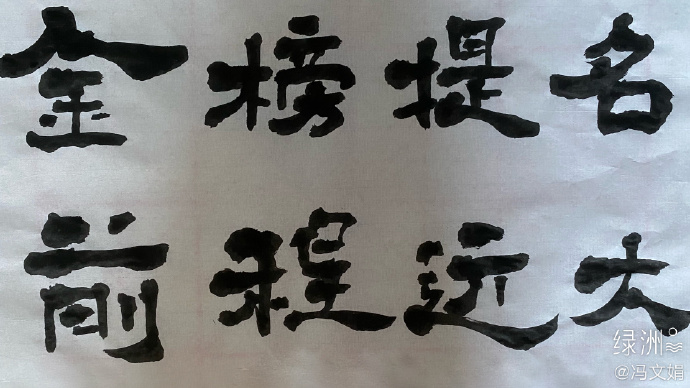 金榜提名
前程远大
绿洲
@冯文娟